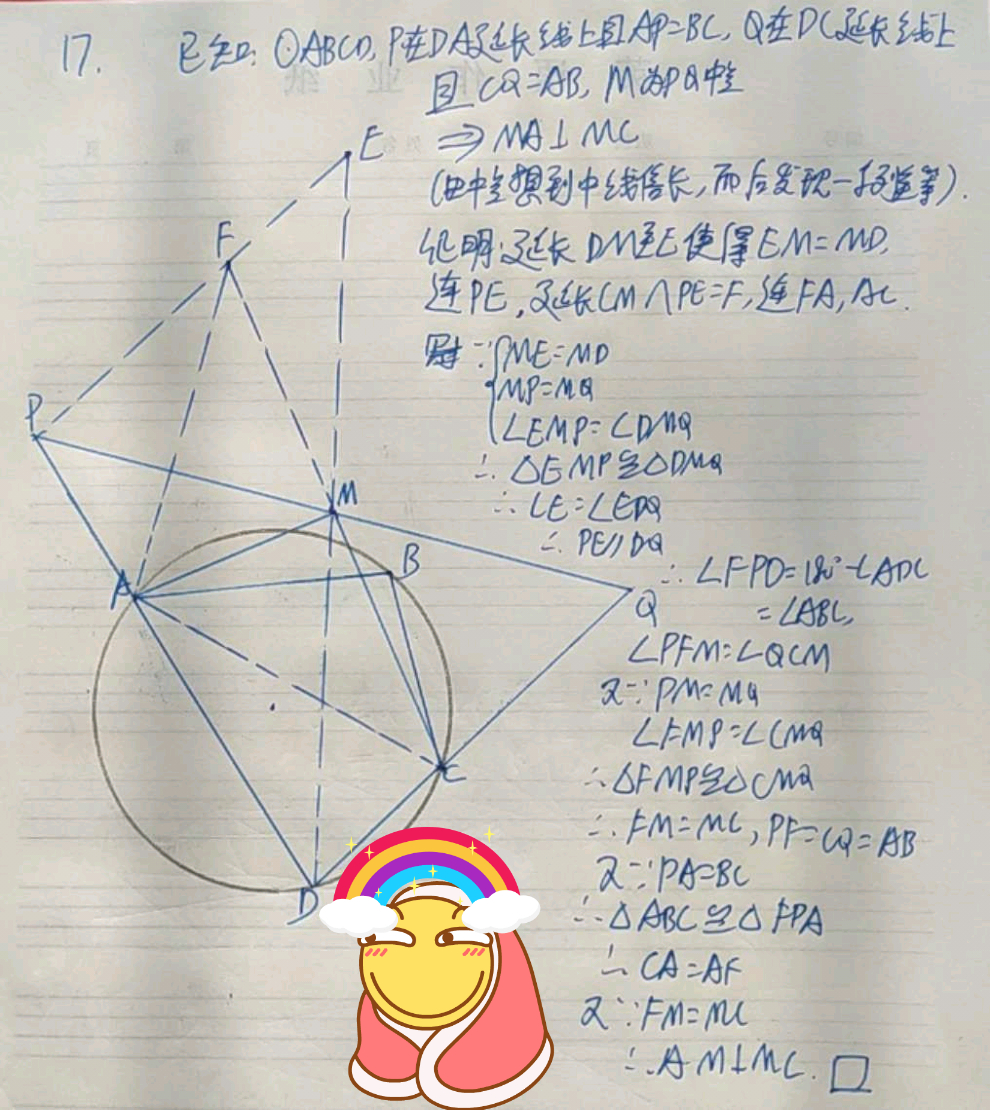 17. 已知: ⊙ABCD, P在DA延长线上且AP=BC, Q在DC延长线上
且CQ=AB, M为PQ中点
⇒ MA⊥MC
(由中点想到中线倍长,而后发现一段造等).
证明:延长DM至E使得EM=MD,
连PE,延长CM∩PE=F,连FA,AC.
∵{ME=MD
MP=MQ
∠EMP=∠DMQ
∴ △EMP≌△DMQ
∴ ∠E=∠EDQ
∴ PE//DQ
∴ ∠FPD=180°-∠ADC
=∠ABC,
∠PFM=∠QCM
又∵PM=MQ
∠FMP=∠CMQ
∴△FMP≌△CMQ
∴ FM=MC, PF=CQ=AB
又∵PA=BC
∴△ABC≌△FPA
∴ CA=AF
又∵FM=MC
∴AM⊥MC. □
E
F
P
M
B
A
Q
C
D